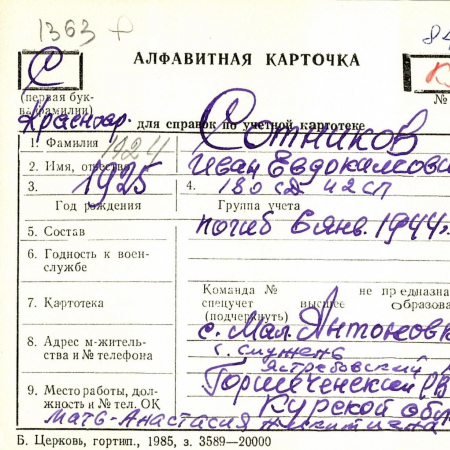 1363
84
АЛФАВИТНАЯ КАРТОЧКА
С
(первая бук-
ва фамилии)
№
Краснояр.
для справок по учетной картотеке
1. Фамилия 1924 Сотников
2. Имя, отчество Иван Евдокимови
3. 1925 4. 180 сд 42 сп
Год рождения Группа учета
5. Состав погиб 6 янв. 1944г.
6. Годность к воен-
службе
7. Картотека
Команда № не предназна
спецучет высшее образова
(подчеркнуть)
8. Адрес м-житель-
ства и № телефона
с. Мал. Антоновк
г. служень
Ястребовский
9. Место работы, дол-
жность и № тел. ОК
Горшеченский РВ
Курской обл
Мать-Анастасия Никитична
Б. Церковь, гортип., 1985, з. 3589—20000